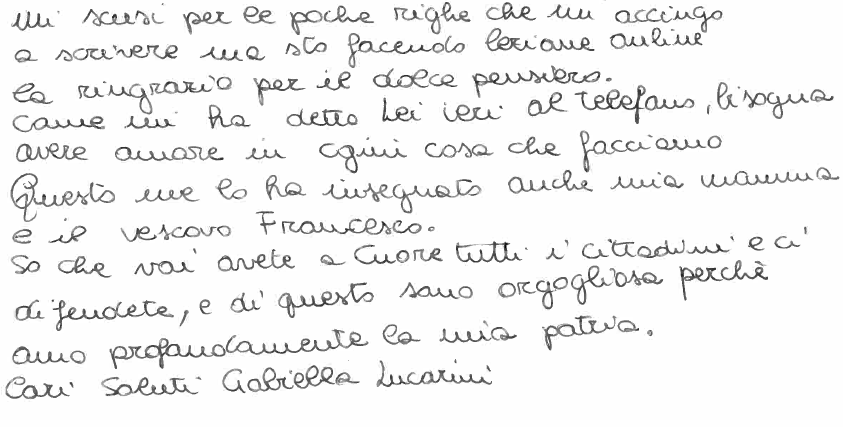 mi scusi per le poche righe che mi accingo
a scrivere ma sto facendo lezione online
la ringrazio per il dolce pensiero.
come mi ha detto Lei ieri al telefono, bisogna
avere amore in ogni cosa che facciamo
Questo me lo ha insegnato anche mia mamma
e il vescovo Francesco.
So che voi avete a cuore tutti i cittadini e ci
difendete, e di questo sono orgogliosa perchè
amo profondamente la mia patria.
Cari Saluti Gabriella Lucarini